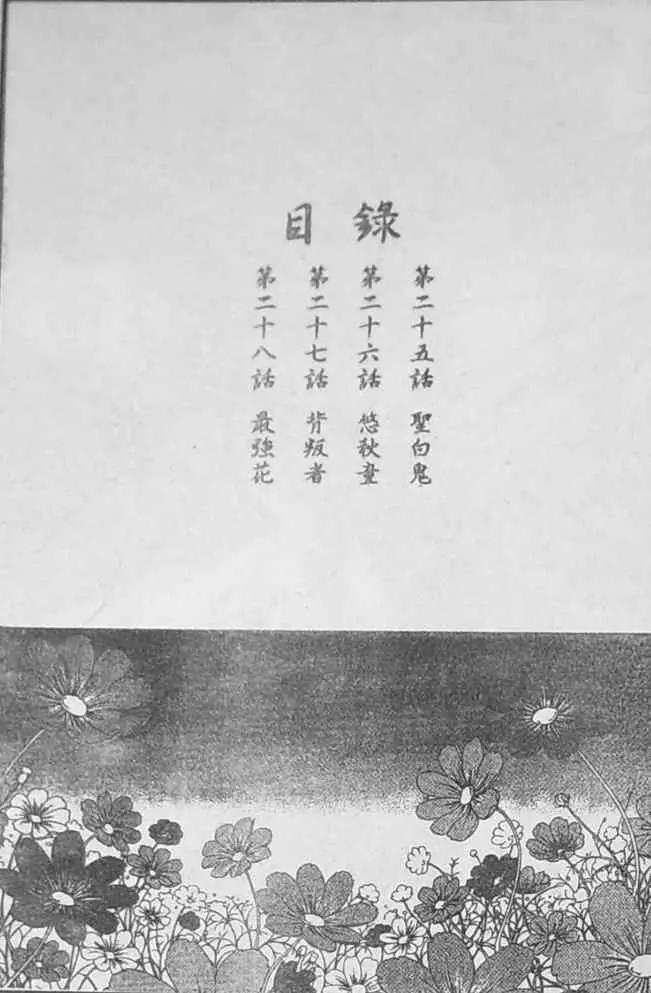 目錄
第二十五話 聖白鬼
第二十六話 悠秋畫
第二十七話 背叛者
第二十八話 最強花